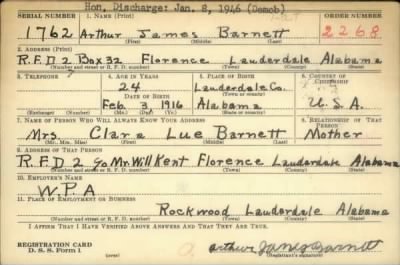 Hon. Discharge: Jan. 8, 1946 (Demob)
SERIAL NUMBER 1. NAME (Print) ORDER NUMBER
1762 Arthur James Barnett 2268
(First) (Middle) (Last)
2. ADDRESS (Print)
R.F.D 2 Box 32 Florence Lauderdale Alabama
(Number and street or R. F. D. number) (Town) (County) (State)
3. TELEPHONE 4. AGE IN YEARS 5. PLACE OF BIRTH 6. COUNTRY OF CITIZENSHIP
24 Lauderdale Co.
DATE OF BIRTH
Feb. 3 1916 Alabama U.S.A.
(Exchange) (Number) (Mo.) (Day) (Yr.) (State or country)
7. NAME OF PERSON WHO WILL ALWAYS KNOW YOUR ADDRESS 8. RELATIONSHIP OF THAT PERSON
Mrs. Clara Lue Barnett Mother
(Mr., Mrs., Miss) (First) (Middle) (Last)
9. ADDRESS OF THAT PERSON
R.F.D 2 % Mr. Will Kent Florence Lauderdale Alabama
(Number and street or R. F. D. number) (Town) (County) (State)
10. EMPLOYER'S NAME
W.P.A
11. PLACE OF EMPLOYMENT OR BUSINESS
Rockwood Lauderdale Alabama
(Number and street or R. F. D. number) (Town) (County) (State)
I AFFIRM THAT I HAVE VERIFIED ABOVE ANSWERS AND THAT THEY ARE TRUE.
REGISTRATION CARD
D. S. S. Form 1
Arthur James Barnett
(Registrant's signature)